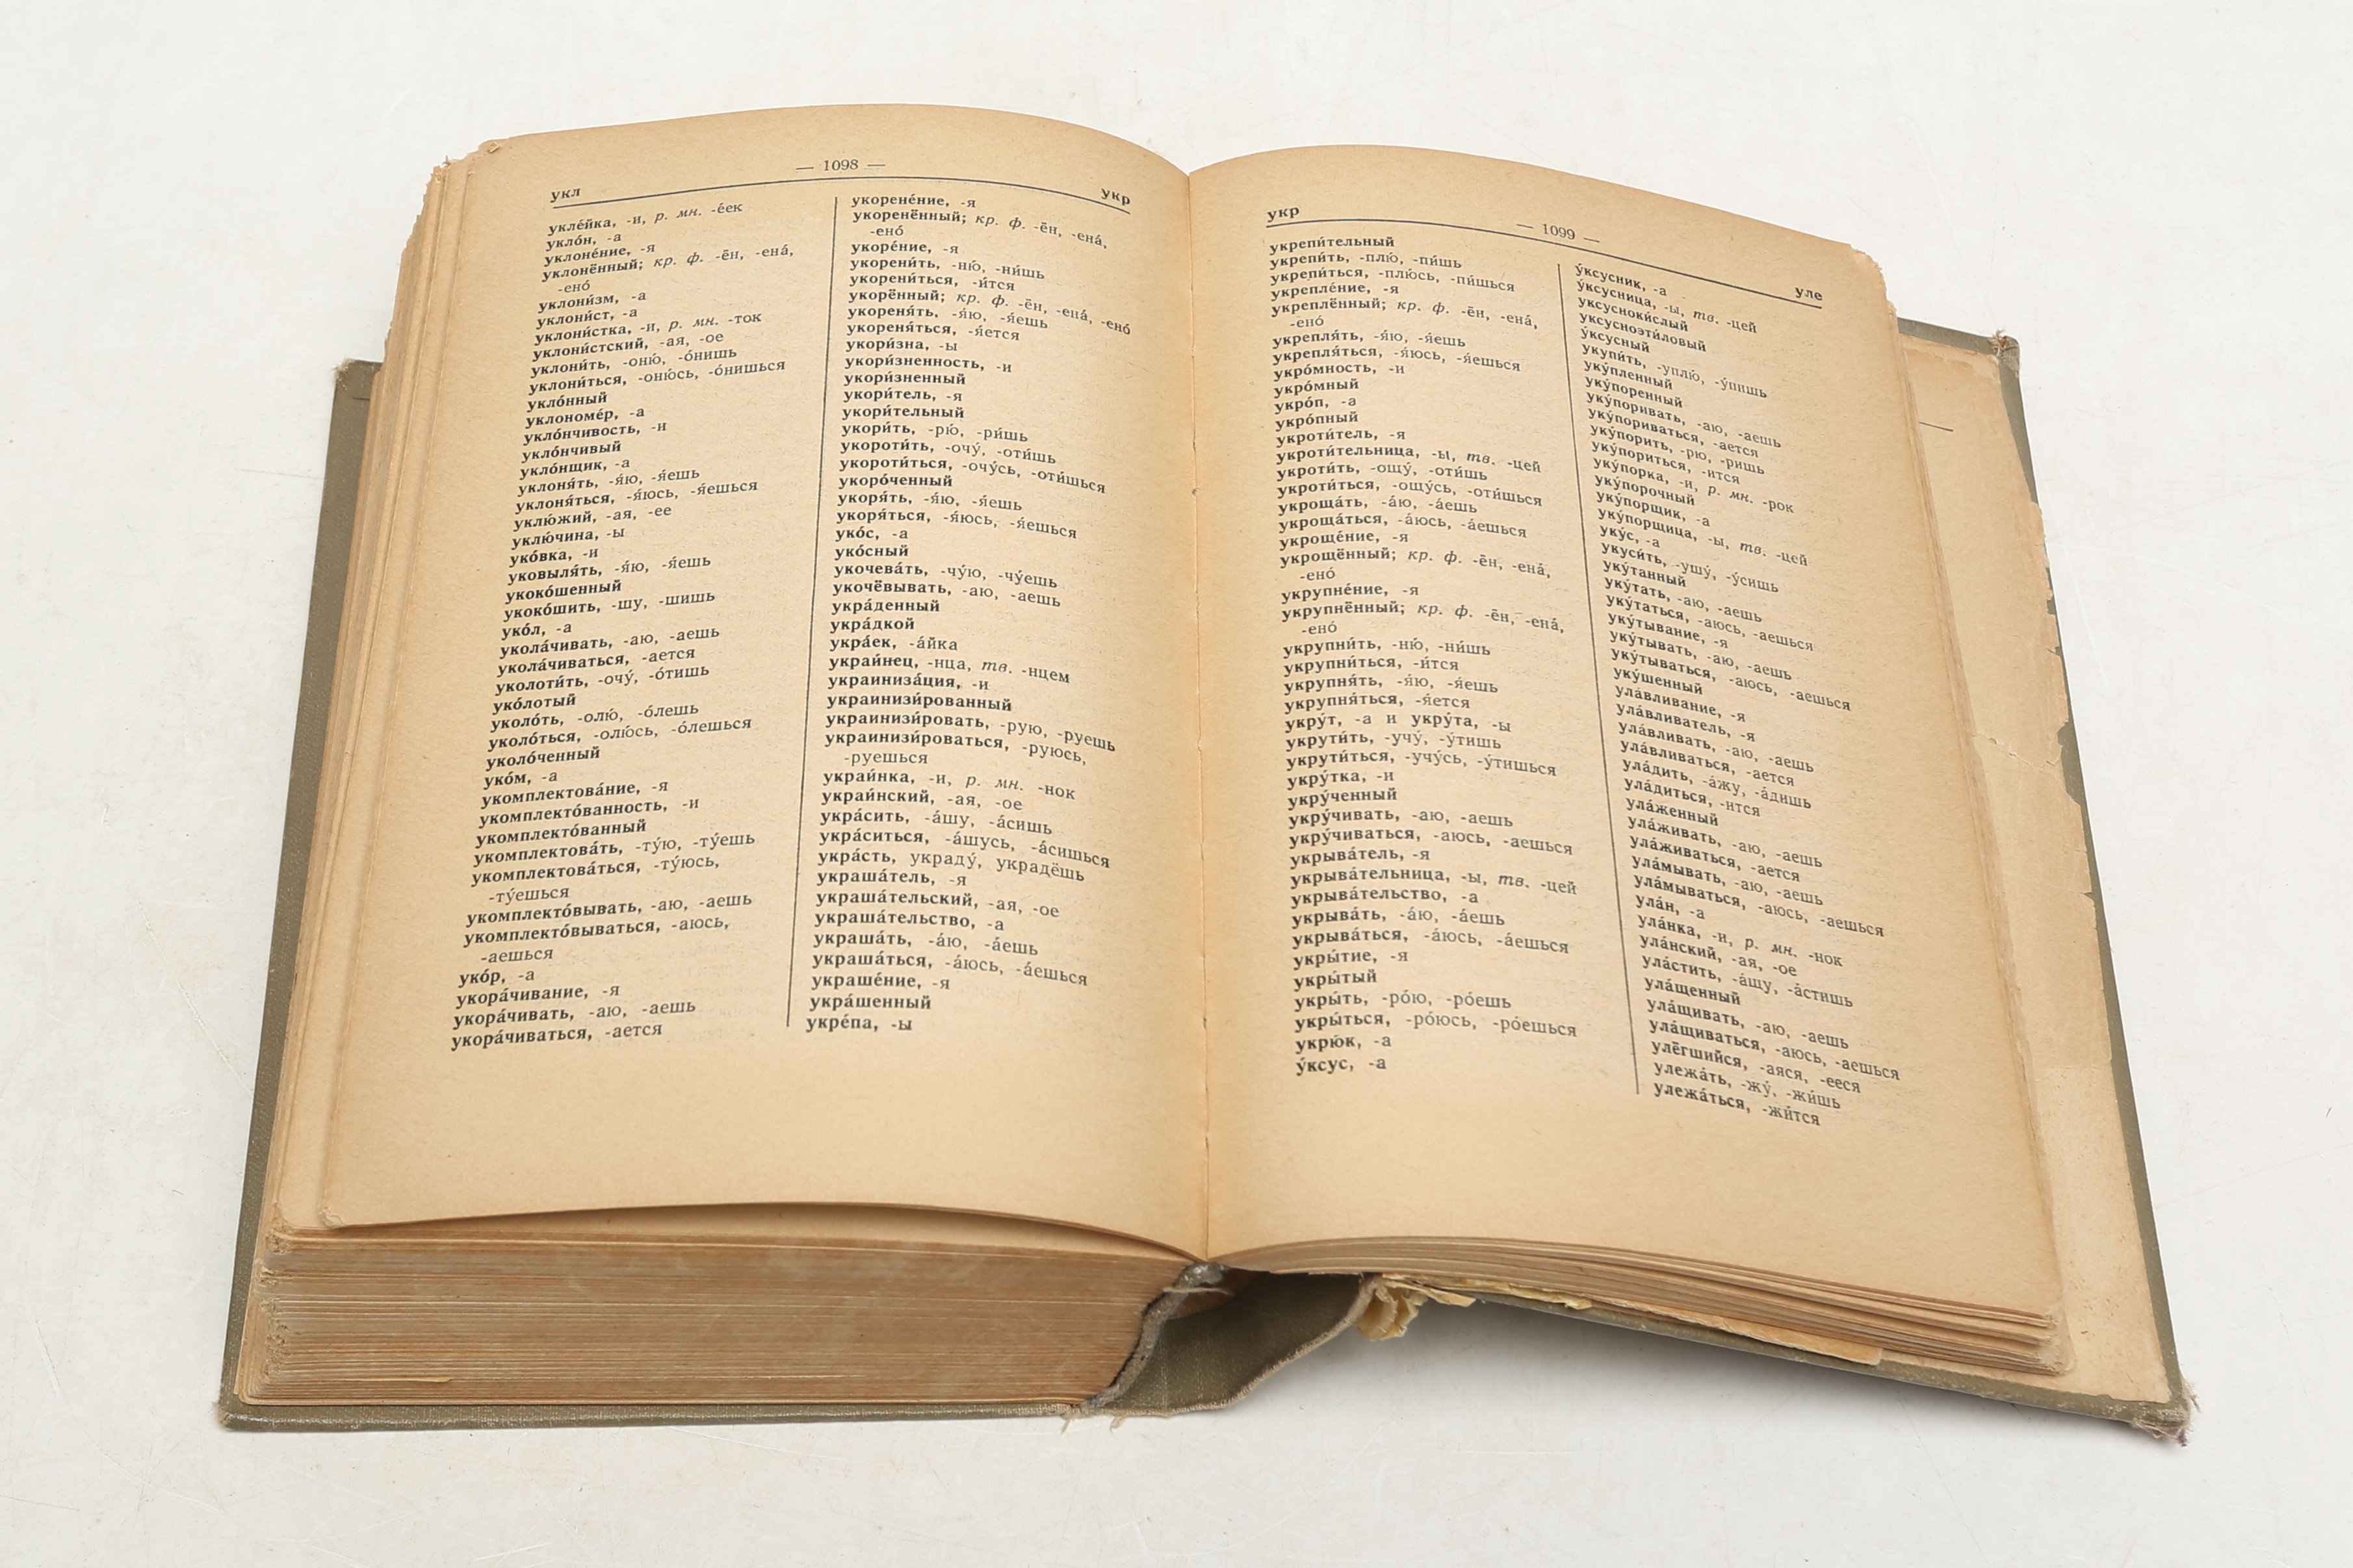 — 1098 —
укл
укр
укле́йка, -и, р. мн. -е́ек
укло́н, -а
уклоне́ние, -я
уклонённый; кр. ф. -ён, -ена́,
-ено́
уклони́зм, -а
уклони́ст, -а
уклони́стка, -и, р. мн. -ток
уклони́стский, -ая, -ое
уклони́ть, -оню́, -о́нишь
уклони́ться, -оню́сь, -о́нишься
укло́нный
уклономе́р, -а
укло́нчивость, -и
укло́нчивый
укло́нщик, -а
уклоня́ть, -я́ю, -я́ешь
уклоня́ться, -я́юсь, -я́ешься
уклю́жий, -ая, -ее
уклю́чина, -ы
уко́вка, -и
уковыля́ть, -я́ю, -я́ешь
укоко́шенный
укоко́шить, -шу, -шишь
уко́л, -а
укола́чивать, -аю, -аешь
укола́чиваться, -ается
уколоти́ть, -очу́, -о́тишь
уко́лотый
уколо́ть, -олю́, -о́лешь
уколо́ться, -олю́сь, -о́лешься
уколо́ченный
уко́м, -а
укомплектова́ние, -я
укомплекто́ванность, -и
укомплекто́ванный
укомплектова́ть, -ту́ю, -ту́ешь
укомплектова́ться, -ту́юсь,
-ту́ешься
укомплекто́вывать, -аю, -аешь
укомплекто́вываться, -аюсь,
-аешься
уко́р, -а
укора́чивание, -я
укора́чивать, -аю, -аешь
укора́чиваться, -ается
укорене́ние, -я
укоренённый; кр. ф. -ён, -ена́,
-ено́
укоре́ние, -я
укорени́ть, -ню́, -ни́шь
укорени́ться, -и́тся
укорённый; кр. ф. -ён, -ена́, -ено́
укореня́ть, -я́ю, -я́ешь
укореня́ться, -я́ется
укори́зна, -ы
укори́зненность, -и
укори́зненный
укори́тель, -я
укори́тельный
укори́ть, -рю́, -ри́шь
укороти́ть, -очу́, -оти́шь
укороти́ться, -очу́сь, -оти́шься
укоро́ченный
укоря́ть, -я́ю, -я́ешь
укоря́ться, -я́юсь, -я́ешься
уко́с, -а
уко́сный
укочева́ть, -чу́ю, -чу́ешь
укочёвывать, -аю, -аешь
укра́денный
укра́дкой
укра́ек, -а́йка
украи́нец, -нца, тв. -нцем
украиниза́ция, -и
украинизи́рованный
украинизи́ровать, -рую, -руешь
украинизи́роваться, -руюсь,
-руешься
украи́нка, -и, р. мн. -нок
украи́нский, -ая, -ое
укра́сить, -а́шу, -а́сишь
укра́ситься, -а́шусь, -а́сишься
укра́сть, украду́, украдёшь
украша́тель, -я
украша́тельский, -ая, -ое
украша́тельство, -а
украша́ть, -а́ю, -а́ешь
украша́ться, -а́юсь, -а́ешься
украше́ние, -я
укра́шенный
укре́па, -ы
укр
— 1099 —
уле
укрепи́тельный
укрепи́ть, -плю́, -пи́шь
укрепи́ться, -плю́сь, -пи́шься
укрепле́ние, -я
укреплённый; кр. ф. -ён, -ена́,
-ено́
укрепля́ть, -я́ю, -я́ешь
укрепля́ться, -я́юсь, -я́ешься
укро́мность, -и
укро́мный
укро́п, -а
укро́пный
укроти́тель, -я
укроти́тельница, -ы, тв. -цей
укроти́ть, -ощу́, -оти́шь
укроти́ться, -ощу́сь, -оти́шься
укроща́ть, -а́ю, -а́ешь
укроща́ться, -а́юсь, -а́ешься
укроще́ние, -я
укрощённый; кр. ф. -ён, -ена́,
-ено́
укрупне́ние, -я
укрупнённый; кр. ф. -ён, -ена́,
-ено́
укрупни́ть, -ню́, -ни́шь
укрупни́ться, -и́тся
укрупня́ть, -я́ю, -я́ешь
укрупня́ться, -я́ется
укру́т, -а и укру́та, -ы
укрути́ть, -учу́, -у́тишь
укрути́ться, -учу́сь, -у́тишься
укру́тка, -и
укру́ченный
укру́чивать, -аю, -аешь
укру́чиваться, -аюсь, -аешься
укрыва́тель, -я
укрыва́тельница, -ы, тв. -цей
укрыва́тельство, -а
укрыва́ть, -а́ю, -а́ешь
укрыва́ться, -а́юсь, -а́ешься
укры́тие, -я
укры́тый
укры́ть, -ро́ю, -ро́ешь
укры́ться, -ро́юсь, -ро́ешься
укрю́к, -а
у́ксус, -а
у́ксусник, -а
у́ксусница, -ы, тв. -цей
уксусноки́слый
уксусноэти́ловый
у́ксусный
укупи́ть, -уплю́, -у́пишь
уку́пленный
уку́поренный
уку́поривать, -аю, -аешь
уку́пориваться, -ается
уку́порить, -рю, -ришь
уку́пориться, -ится
уку́порка, -и, р. мн. -рок
уку́порочный
уку́порщик, -а
уку́порщица, -ы, тв. -цей
уку́с, -а
укуси́ть, -ушу́, -у́сишь
уку́танный
уку́тать, -аю, -аешь
уку́таться, -аюсь, -аешься
уку́тывание, -я
уку́тывать, -аю, -аешь
уку́тываться, -аюсь, -аешься
уку́шенный
ула́вливание, -я
ула́вливатель, -я
ула́вливать, -аю, -аешь
ула́вливаться, -ается
ула́дить, -а́жу, -а́дишь
ула́диться, -ится
ула́женный
ула́живать, -аю, -аешь
ула́живаться, -ается
ула́мывать, -аю, -аешь
ула́мываться, -аюсь, -аешься
ула́н, -а
ула́нка, -и, р. мн. -нок
ула́нский, -ая, -ое
ула́стить, -а́щу, -а́стишь
ула́щенный
ула́щивать, -аю, -аешь
ула́щиваться, -аюсь, -аешься
улёгшийся, -аяся, -ееся
улежа́ть, -жу́, -жи́шь
улежа́ться, -жи́тся